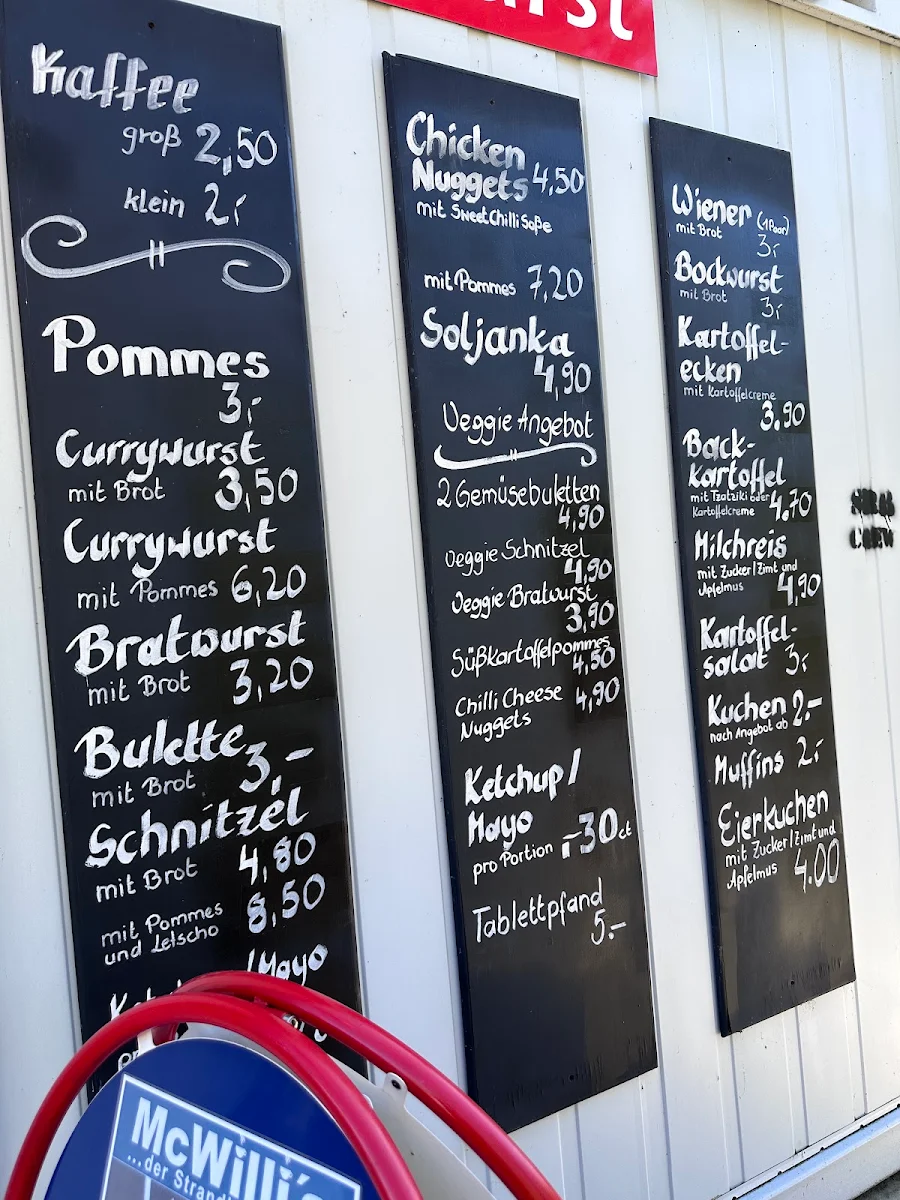 Kaffee
groß 2,50
klein 2,-
Pommes
3,-
Currywurst
mit Brot 3,50
Currywurst
mit Pommes 6,20
Bratwurst
mit Brot 3,20
Bulette
mit Brot 3,-
Schnitzel
mit Brot 4,80
mit Pommes
und Letscho 8,50
/Mayo
Chicken
Nuggets 4,50
mit Sweet Chilli Soße
mit Pommes 7,20
Soljanka
4,90
Veggie Angebot
2 Gemüsebuletten
4,90
Veggie Schnitzel
4,90
Veggie Bratwurst
3,90
Süßkartoffelpommes
4,50
Chilli Cheese
Nuggets 4,90
Ketchup/
Mayo
pro Portion -,30 ct
Tablettpfand
5,-
Wiener (1 Paar)
mit Brot
3,-
Bockwurst
mit Brot
3,-
Kartoffel-
ecken
mit Kartoffelcreme
3.90
Back-
kartoffel
mit Tzatziki oder
Kartoffelcreme 4.70
Milchreis
mit Zucker/Zimt und
Apfelmus 4,90
Kartoffel-
salat 3,-
Kuchen 2,-
nach Angebot ab
Muffins 2,-
Eierkuchen
mit Zucker/Zimt und
Apfelmus 4.00
McWilli's
...der Strand